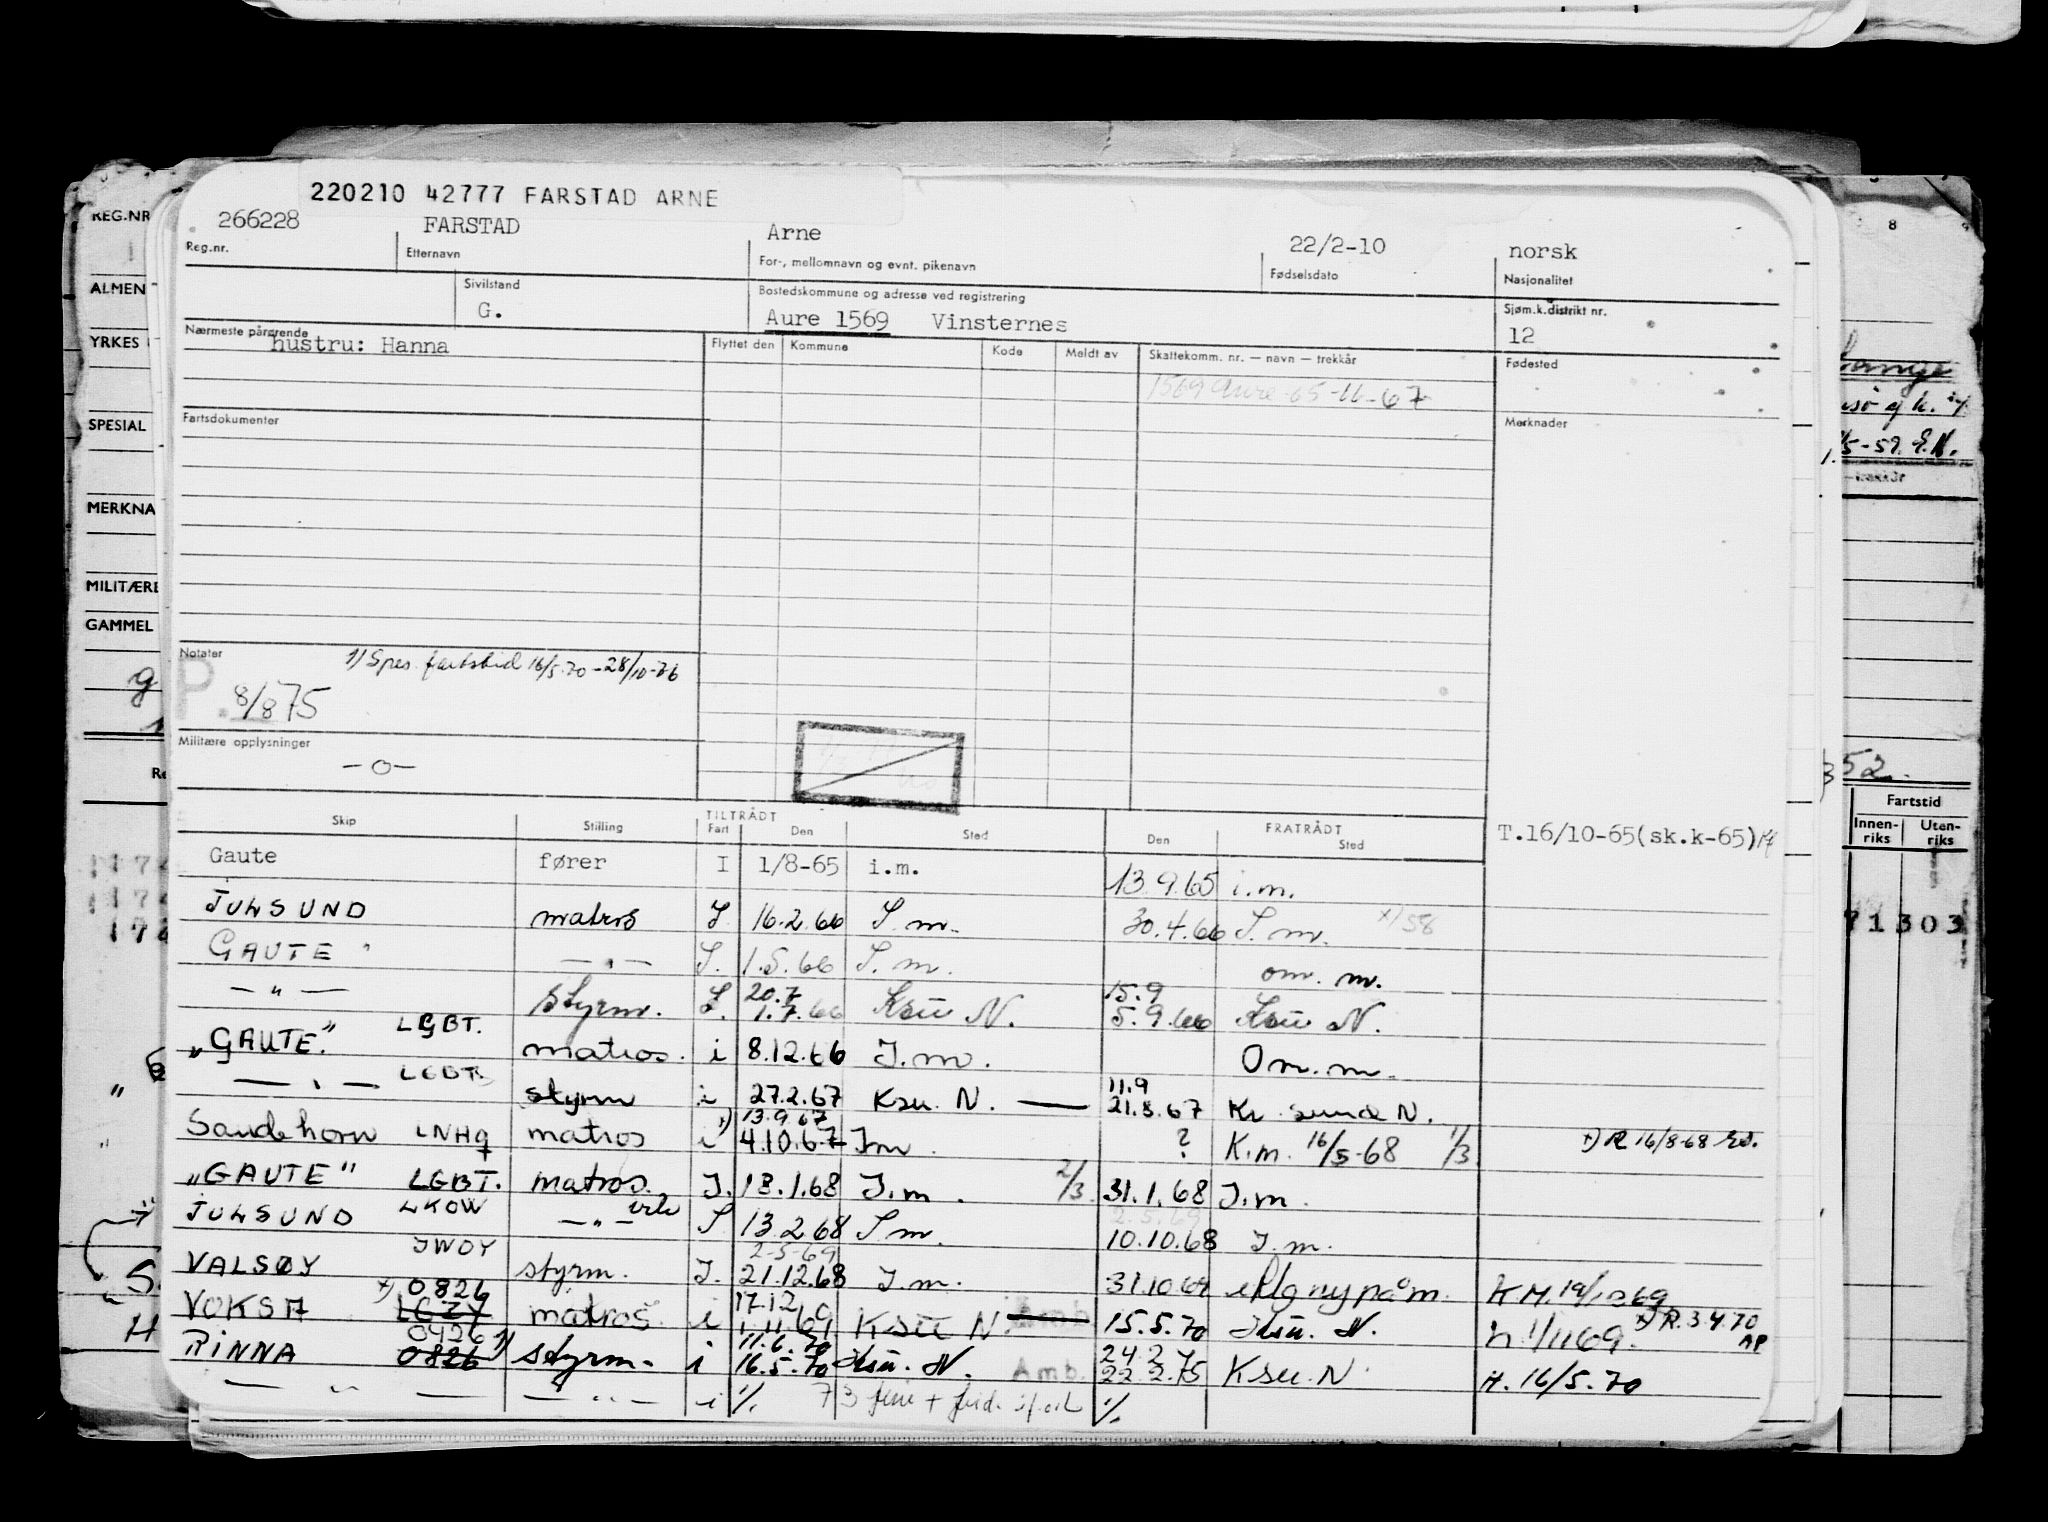 220210 42777 FARSTAD ARNE
266228 FARSTAD Arne 22/2-10 norsk
Reg.nr. Etternavn For-, mellomnavn og evnt. pikenavn Fødselsdato Nasjonalitet
Sivilstand Bostedskommune og adresse ved registrering Sjøm.k.distrikt nr.
G. Aure 1569 Vinsternes 12
Nærmeste pårørende Flyttet den Kommune Kode Meldt av Skattekomm. nr. — navn — trekkår Fødested
hustru: Hanna
1569 Aure 65-66-67
Fartsdokumenter Merknader
Notater 1) Spes. fartstid 16/5.70-28/10-76
P. 8/8 75
Militære opplysninger
—o—
Skip Stilling TILTRÅDT Fart Den Sted FRATRÅDT Den Sted
T.16/10-65(sk.k-65)
Gaute fører I 1/8-65 i.m. 13.9.65 i.m.
JULSUND matros I. 16.2.66 I.m. 30.4.66 I.m. x)58
GAUTE — " — I. 1.5.66 I.m. om. m.
— " — styrm. I. 20.7 1.7.66 Ksu N. 15.9 5.9.66 Ksu N.
"GAUTE" LGBT. matros. i 8.12.66 I.m. Om.m.
— " — LGBT styrm i 27.2.67 Ksu. N. — 11.9 21.3.67 Kr. sund N.
Sandehorn LNHQ matros i x) 13.9.67 4.10.67 Im. ? K.m. 16/5-68 1/3 x) R 16/8-68
"GAUTE" LGBT. matros. I. 18.1.68 I.m. 2/3 31.1.68 I.m.
JULSUND LKOW — " — I 13.2.68 I m. 2.5.69 10.10.68 I.m.
VALSØY JWOY styrm. I. 2-5-69 21.12.68 I.m. 31.10.69 KM.19/12 69
VOKSA x) 0826 matros. i 17.12 1.11.69 Ksu N. 15.5.70 Ksu. N. 1/11 69. x) R.3 4 70 AP
RINNA 0426 1) 0826 styrm. i 11.6.70 16.5.70 Ksu. N. Amb. 24.2 22.2.75 Ksu. N. H. 16/5.70
— " — — " — i 1/1. 73
REG.NR
ALMEN
YRKES
SPESIAL
MERKNA
MILITÆRE
GAMMEL
8
1/5-59. E.N.
52.
Fartstid
Innen-riks Uten-riks
71303